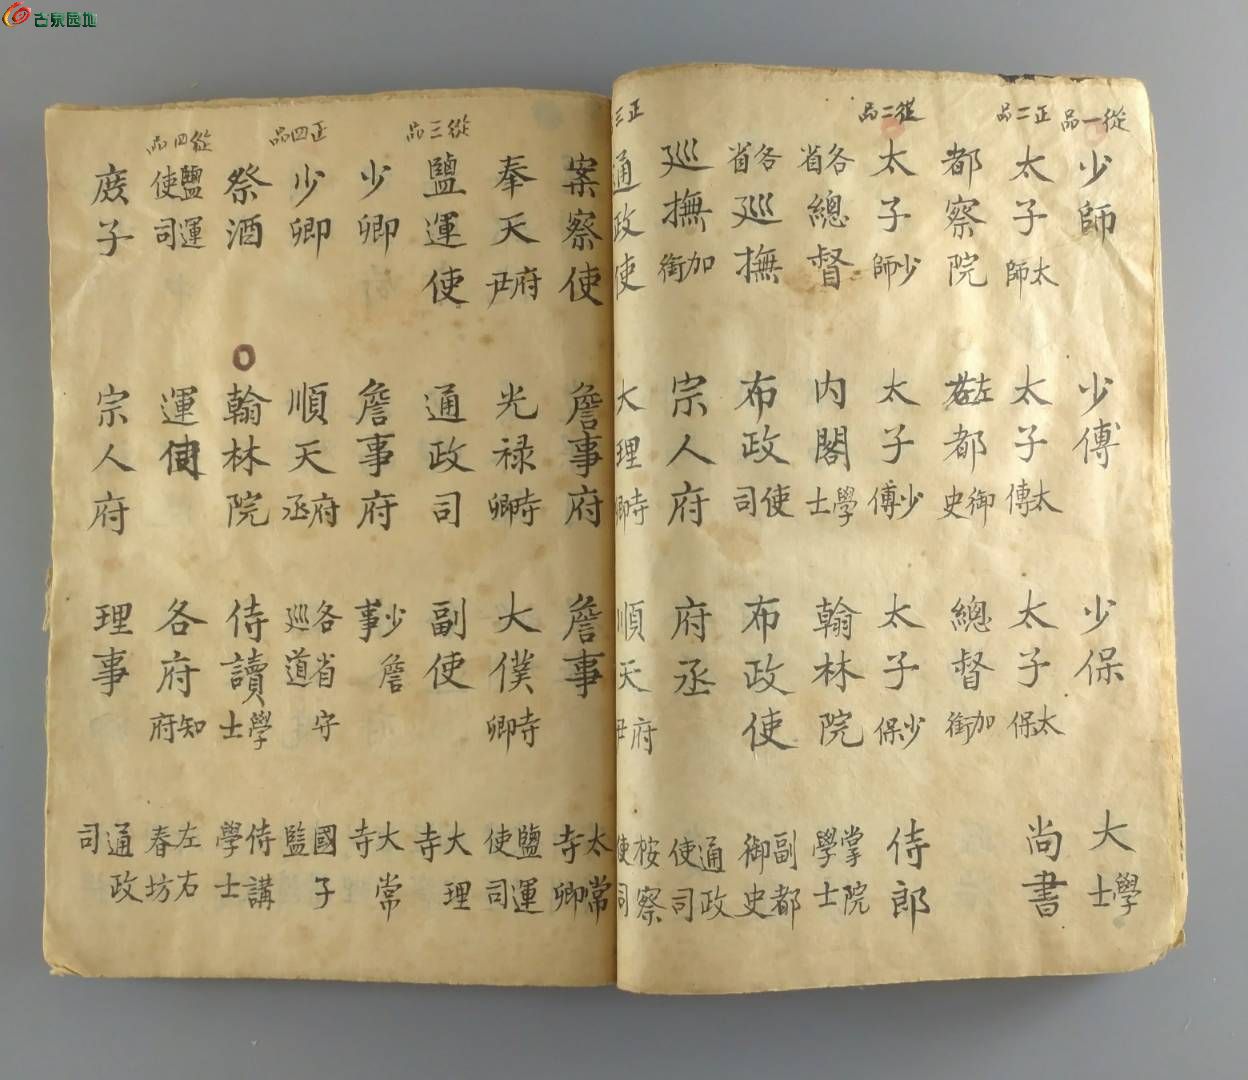 古泉园地
從一品
少師 少傅 少保 大學士
正二品
太子太師 太子太傅 太子太保 尚書
都察院 左右都御史 總督加銜
從二品
太子少師 太子少傅 太子少保 侍郎
各省總督 内閣學士 翰林院 掌院學士
各省巡撫 布政使司 布政使 副都御史
巡撫加銜 宗人府 府丞 通政使司
正三
通政使 大理寺卿 順天府尹 按察使司
案察使 詹事府 詹事 太常寺卿
奉天府尹 光禄寺卿 大僕寺卿 鹽運使司
從三品
鹽運使 通政司 副使 大理寺
少卿 詹事府 少詹事 大常寺
正四品
少卿 順天府丞 各省守巡道 國子監
祭酒 翰林院 侍讀學士 侍講學士
從四品
鹽運使司 運同 各府知府 左右春坊
庶子 宗人府 理事 通政司